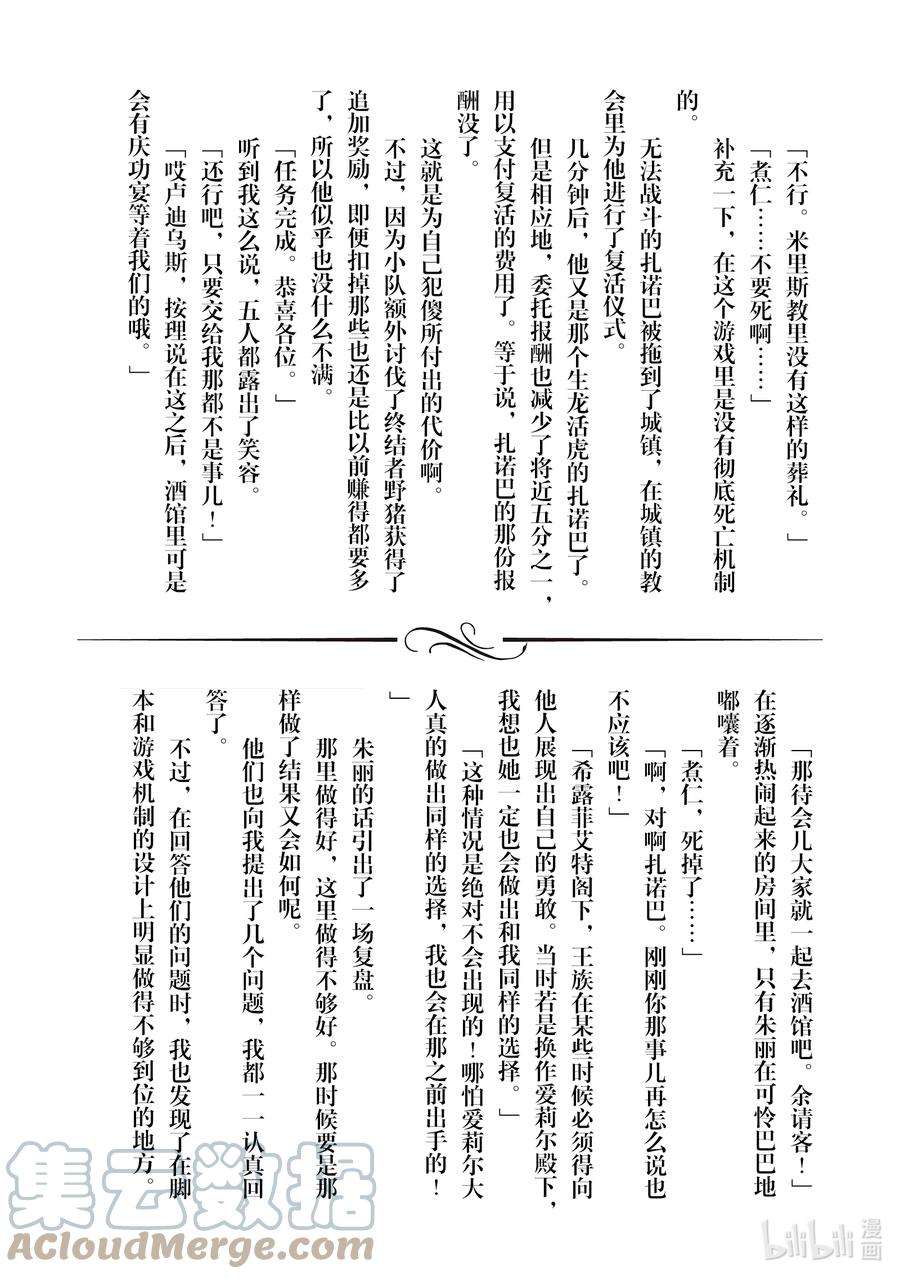 「不行。米里斯教里没有这样的葬礼。」
「煮仁……不要死啊……」
补充一下，在这个游戏里是没有彻底死亡机制
的。
无法战斗的扎诺巴被拖到了城镇，在城镇的教
会里为他进行了复活仪式。
几分钟后，他又是那个生龙活虎的扎诺巴了。
但是相应地，委托报酬也减少了将近五分之一，
用以支付复活的费用了。等于说，扎诺巴的那份报
酬没了。
这就是为自己犯傻所付出的代价啊。
不过，因为小队额外讨伐了终结者野猪获得了
追加奖励，即便扣掉那些也还是比以前赚得都要多
了，所以他似乎也没什么不满。
「任务完成。恭喜各位。」
听到我这么说，五人都露出了笑容。
「还行吧，只要交给我那都不是事儿！」
「哎卢迪乌斯，按理说在这之后，酒馆里可是
会有庆功宴等着我们的哦。」
「那待会儿大家就一起去酒馆吧。余请客！」
在逐渐热闹起来的房间里，只有朱丽在可怜巴巴地
嘟囔着。
「煮仁，死掉了……」
「啊，对啊扎诺巴。刚刚你那事儿再怎么说也
不应该吧！」
「希露菲艾特阁下，王族在某些时候必须得向
他人展现出自己的勇敢。当时若是换作爱莉尔殿下，
我想也她一定也会做出和我同样的选择。」
「这种情况是绝对不会出现的！哪怕爱莉尔大
人真的做出同样的选择，我也会在那之前出手的！
」
朱丽的话引出了一场复盘。
那里做得好，这里做得不够好。那时候要是那
样做了结果又会如何呢。
他们也向我提出了几个问题，我都一一认真回
答了。
不过，在回答他们的问题时，我也发现了在脚
本和游戏机制的设计上明显做得不够到位的地方。
集云数据
ACloudMerge.com
bilibili
漫画